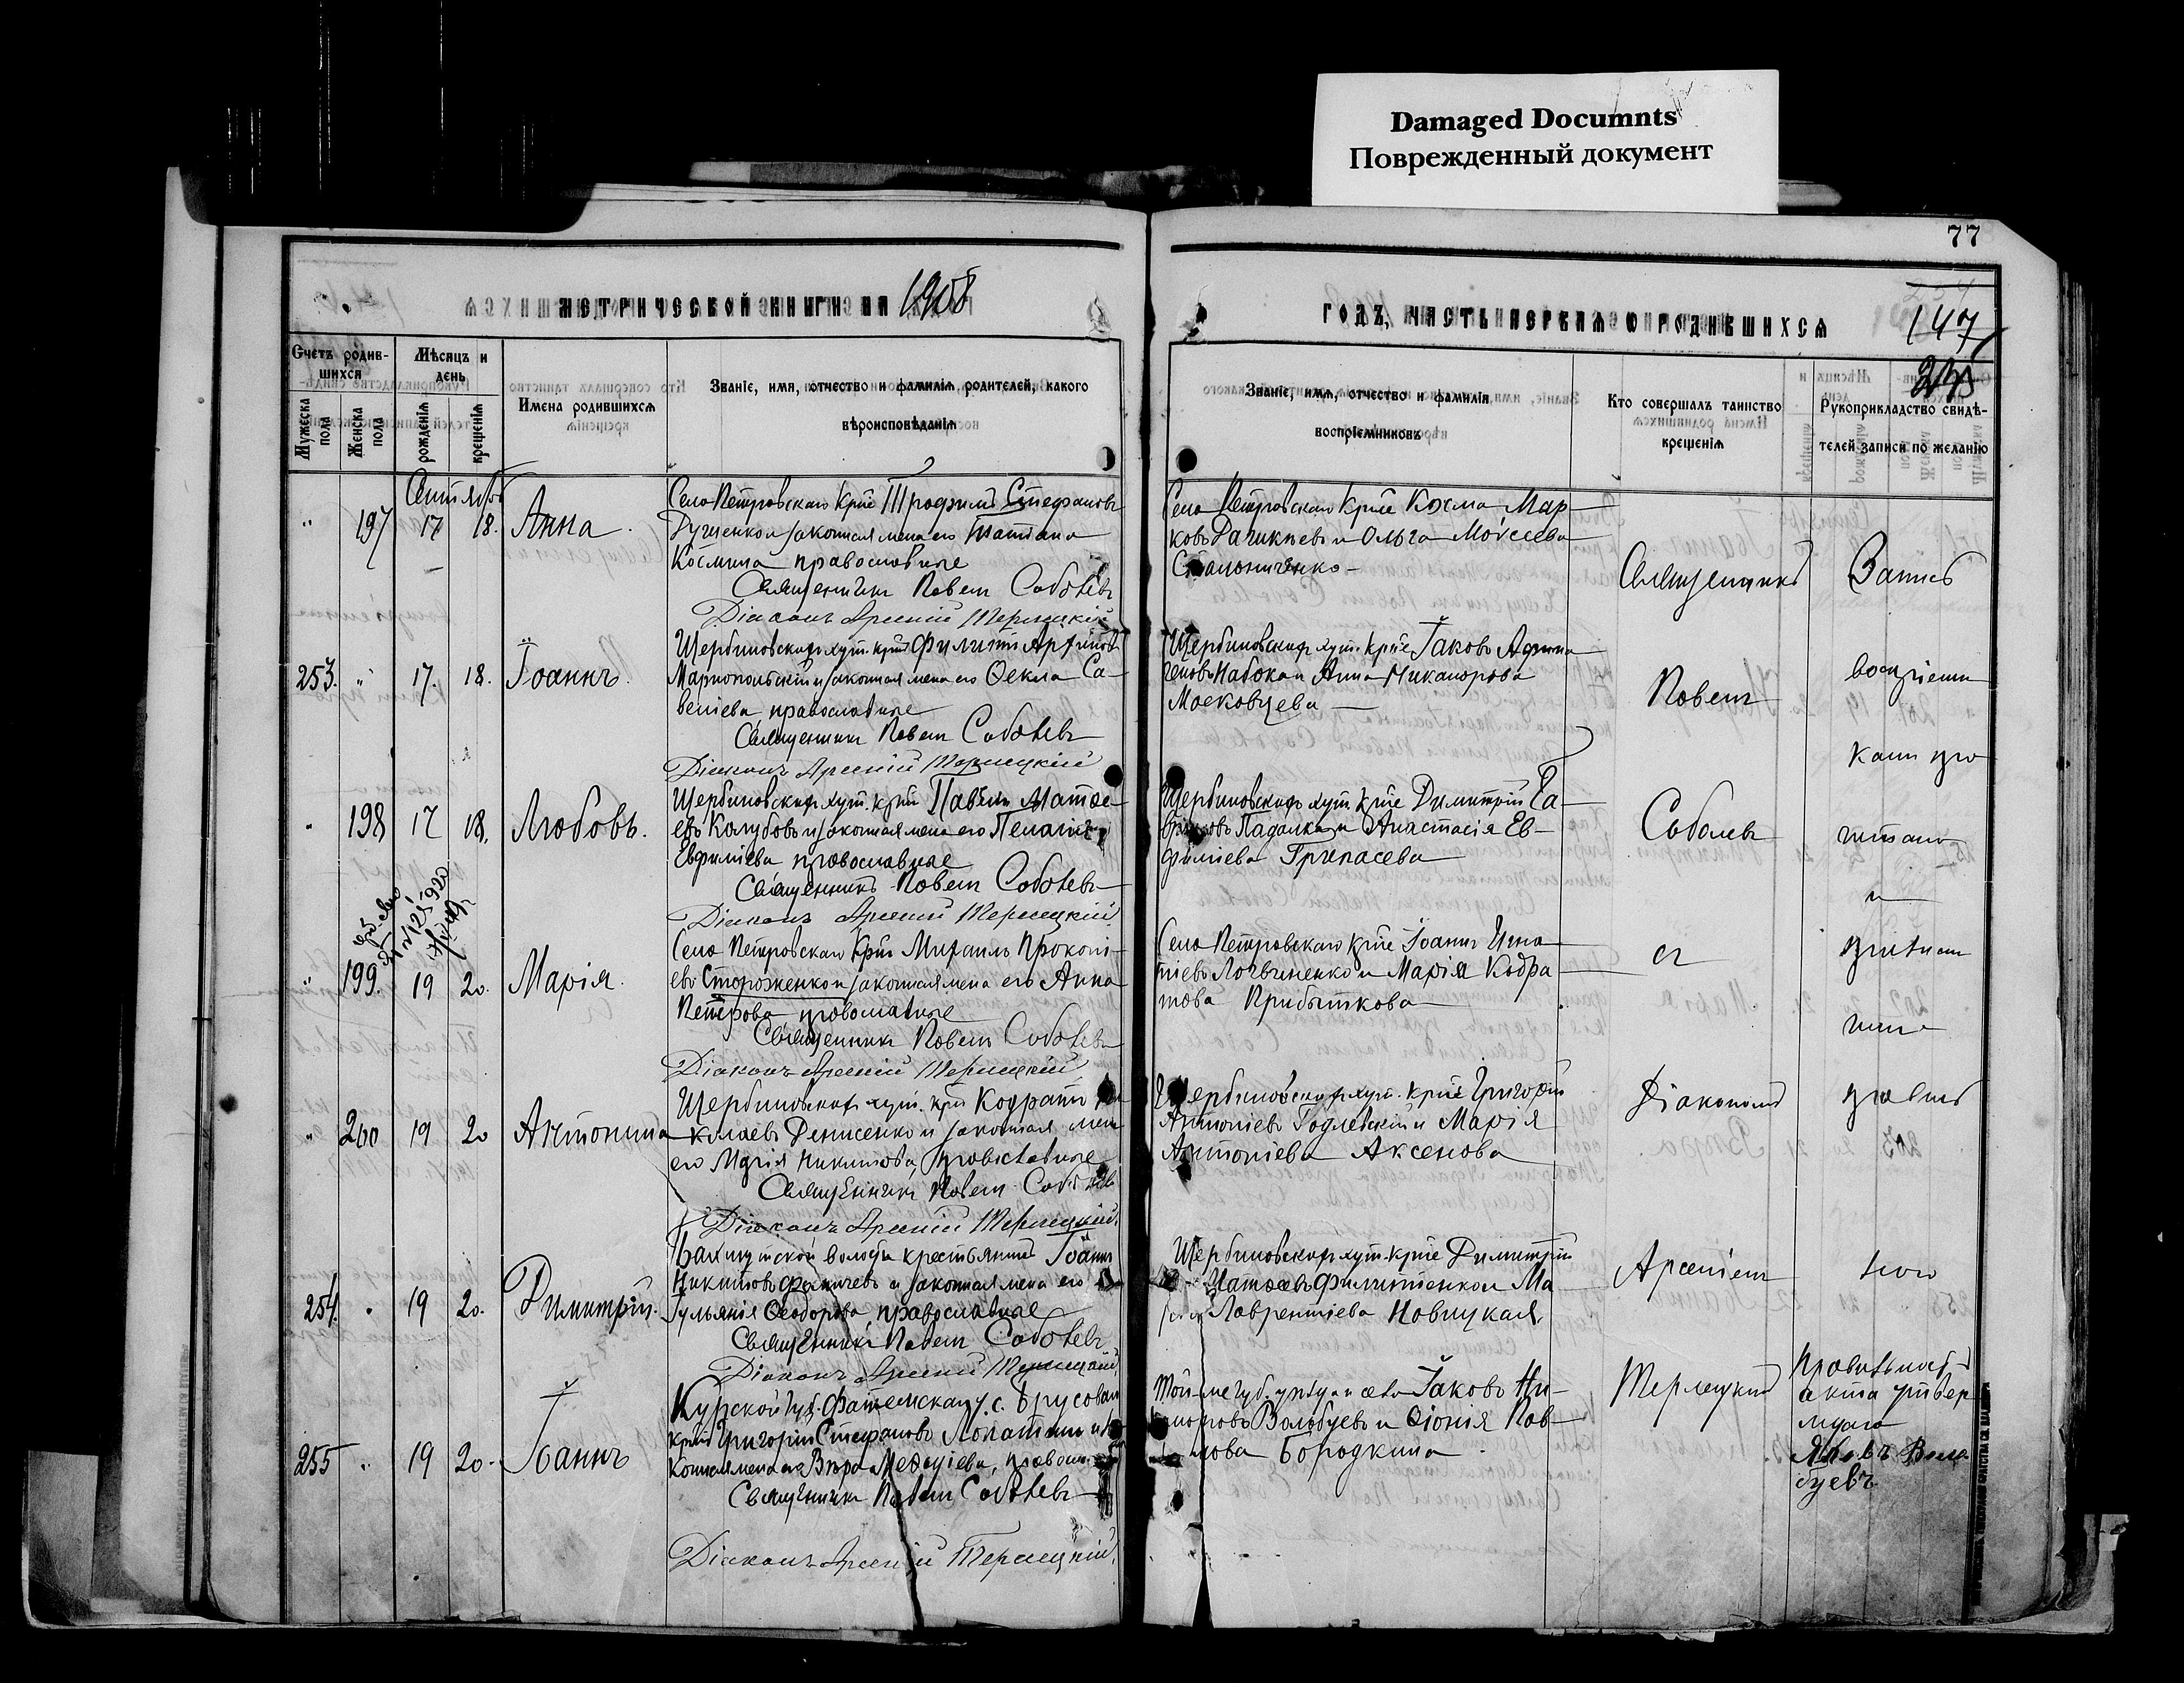 Damaged Documnts
Поврежденный документ
77
МЕТРИЧЕСКОЙ КНИГИ НА 1908
ГОДЪ, ЧАСТЬ ПЕРВАЯ О РОДИВШИХСЯ
147
Счетъ родив-
шихся
Мужеска пола
Женска пола
Мѣсяцъ и
день
рожденія
крещенія
Имена родившихся
Званіе, имя, отчество и фамилія родителей, какого
вѣроисповѣданія
Званіе, имя, отчество и фамилія
воспріемниковъ
Кто совершалъ таинство
крещенія
Рукоприкладство свидѣ-
телей записи по желанію
Сентябрь
" 197 17 18. Анна.
Села Петровскаго кр. Трофимъ Стефановъ
и законная жена его Татіана
Космина православные
Священникъ Павелъ Соболевъ
Діаконъ Арсеній Терлецкій
Села Петровскаго кр. Косма Мар-
ковъ и Ольга Моѵсеева
253. " 17. 18. Іоаннъ.
Щербиновскихъ хут. кр.
Маріопольскій и законная жена его Ѳекла Са-
веліева, православные
Священникъ Павелъ Соболевъ
Діаконъ Арсеній Терлецкій
Щербиновскихъ хут. кр. Іаковъ Афина-
геновъ Набока и Анна Никанорова
Московцева
" 198 17 18. Любовь.
Щербиновскихъ хут. кр. Павелъ Матѳе-
евъ Колубовъ и законная жена его Пелагія
Евфиміева православные
Священникъ Павелъ Соболевъ
Діаконъ Арсеній Терлецкій
Щербиновскихъ хут. кр. Димитрій Га-
вриловъ Падалка и Анастасія Ев-
фиміева
" 199. 19 20. Марія.
Села Петровскаго кр. Михаилъ Прокопі-
евъ Стороженко и законная жена его Анна
Петрова, православные
Священникъ Павелъ Соболевъ
Діаконъ Арсеній Терлецкій
Села Петровскаго кр. Іоаннъ Игна-
тіевъ Логвиненко и Марія Кодра-
това Прибыткова
" 200 19 20 Антонина
Щербиновскихъ хут. кр. Кодратъ Ни-
колаевъ Денисенко и законная жена
его Марія Никитова, православные
Священникъ Павелъ Соболевъ
Діаконъ Арсеній Терлецкій
Щербиновскихъ хут. кр. Григорій
Антоніевъ Годлевскій и Марія
Антоніева Аксенова
254. " 19 20. Димитрій.
Бахмутской волости крестьянинъ Іоаннъ
Никитовъ и законная жена его
Іульянія Ѳеодорова, православные
Священникъ Павелъ Соболевъ
Діаконъ Арсеній Терлецкій
Щербиновскихъ хут. кр. Димитрій
Матѳеевъ Филиппенко и Ма-
рія Лаврентіева Новицкая
255 " 19 20. Іоаннъ
Курской губ. Фатежскаго у. с. Брусоваго
кр. Григорій Стефановъ Лопатинъ и за-
конная жена его Вѣра Меѳодіева, православные
Священникъ Павелъ Соболевъ
Діаконъ Арсеній Терлецкій
Той же губ. уѣзда и села Іаковъ Ни-
коноровъ Волобуевъ и Ѳіонія Пав-
лова Бородкина
Священникъ
Павелъ
Соболевъ
съ
Діакономъ
Арсеніемъ
Терлецкимъ
Запись
воспріем
никамъ про
читана
и
признана
правиль
ною
Правильность
акта утвер
ждаю
Яковъ Воло
буевъ